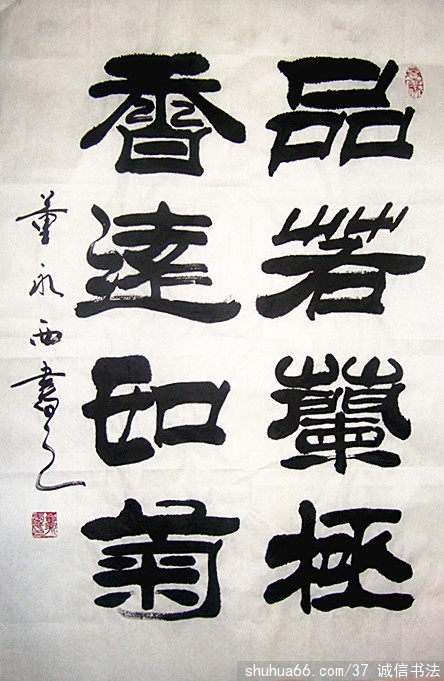 品若蘭極
香遠如菊
董永西書之
shuhua66.com/37 诚信书法